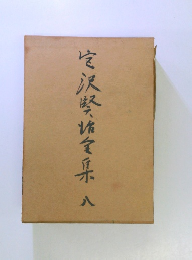 宮沢賢治全集 八